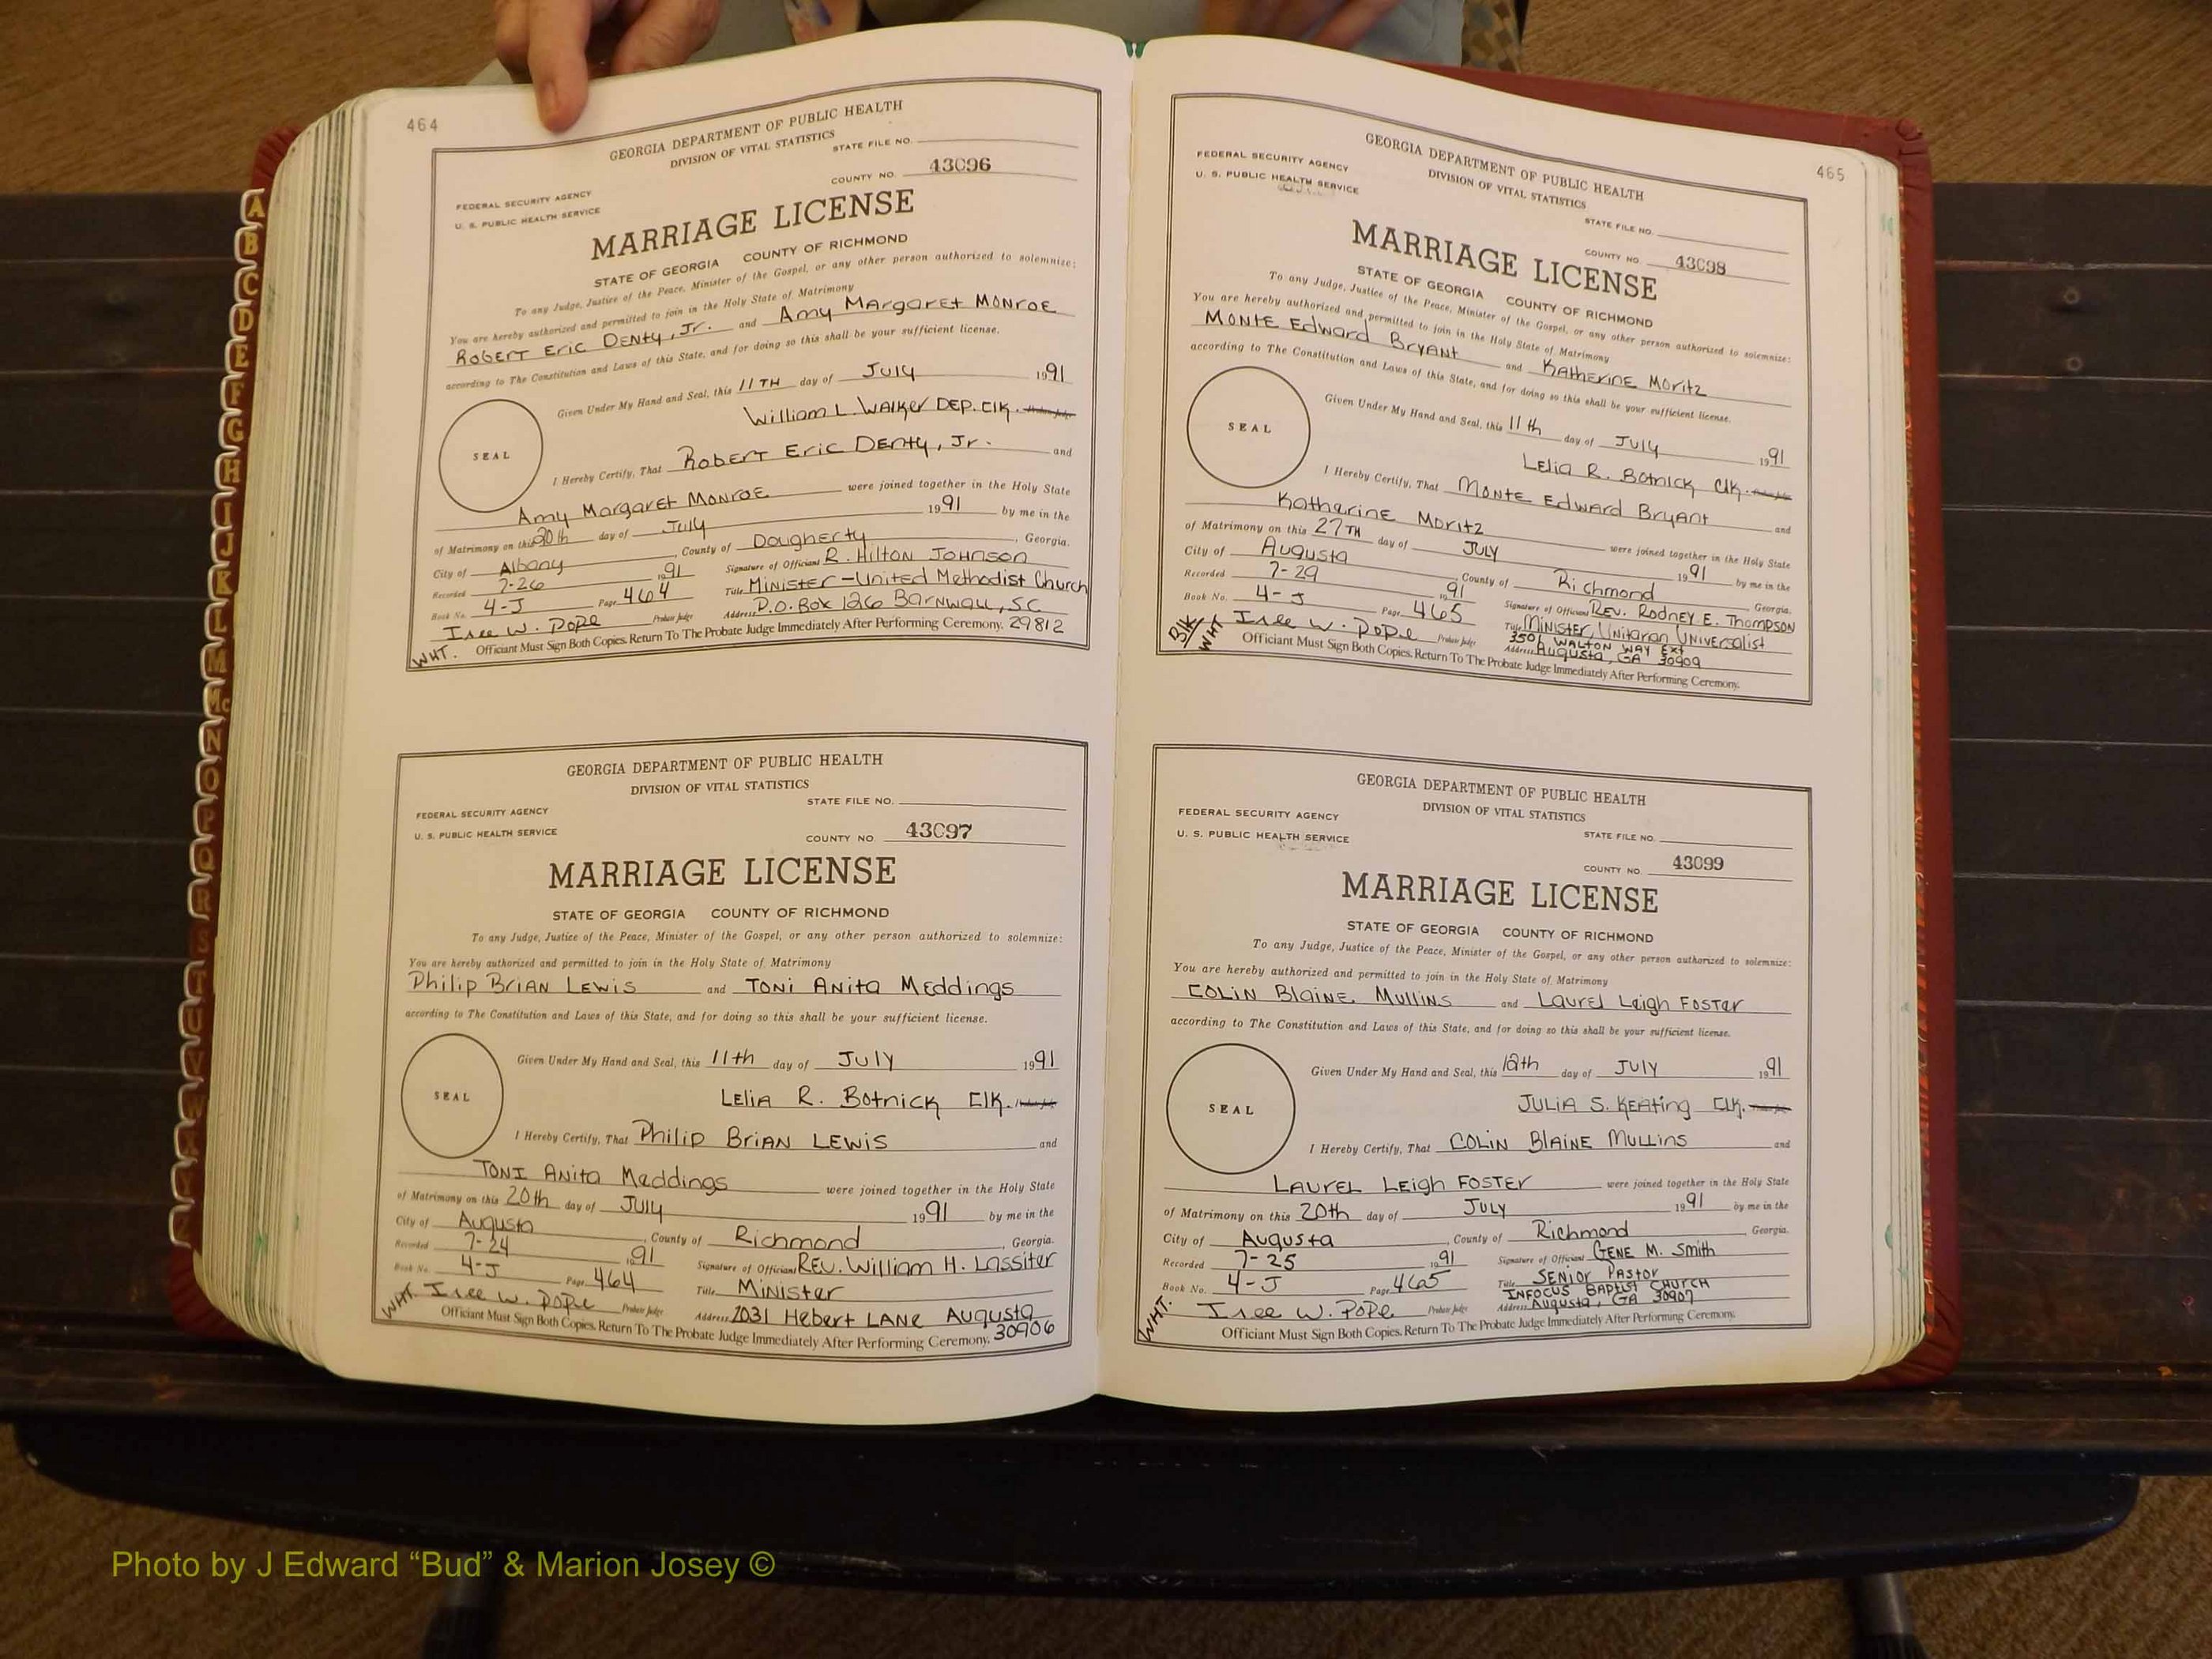 464
GEORGIA DEPARTMENT OF PUBLIC HEALTH
DIVISION OF VITAL STATISTICS
STATE FILE NO.
COUNTY NO. 43096
FEDERAL SECURITY AGENCY
U. S. PUBLIC HEALTH SERVICE
MARRIAGE LICENSE
STATE OF GEORGIA COUNTY OF RICHMOND
To any Judge, Justice of the Peace, Minister of the Gospel, or any other person authorized to solemnize:
You are hereby authorized and permitted to join in the Holy State of Matrimony
Robert Eric Denty, Jr. and Amy Margaret Monroe
according to The Constitution and Laws of this State, and for doing so this shall be your sufficient license.
Given Under My Hand and Seal, this 11TH day of July 1991
William L. Walker DEP. Clk.
SEAL
I Hereby Certify, That Robert Eric Denty, Jr. and
Amy Margaret Monroe were joined together in the Holy State
of Matrimony on this 20th day of July 1991 by me in the
City of Albany County of Dougherty, Georgia.
Recorded 7-26 1991 Signature of Official R. Hilton Johnson
Book No. 4-J Page 464 Title Minister-United Methodist Church
Isee W. Pope Probate Judge Address P.O. Box 126 Barnwall, SC
WHT. Officiant Must Sign Both Copies. Return To The Probate Judge Immediately After Performing Ceremony. 29812
GEORGIA DEPARTMENT OF PUBLIC HEALTH
DIVISION OF VITAL STATISTICS
STATE FILE NO.
FEDERAL SECURITY AGENCY
U. S. PUBLIC HEALTH SERVICE
COUNTY NO. 43097
MARRIAGE LICENSE
STATE OF GEORGIA COUNTY OF RICHMOND
To any Judge, Justice of the Peace, Minister of the Gospel, or any other person authorized to solemnize:
You are hereby authorized and permitted to join in the Holy State of Matrimony
Philip Brian Lewis and Toni Anita Meddings
according to The Constitution and Laws of this State, and for doing so this shall be your sufficient license.
Given Under My Hand and Seal, this 11th day of July 1991
Lelia R. Botnick Clk.
SEAL
I Hereby Certify, That Philip Brian Lewis and
Toni Anita Meddings were joined together in the Holy State
of Matrimony on this 20th day of July 1991 by me in the
City of Augusta, County of Richmond, Georgia.
Recorded 7-24 1991 Signature of Official Rev. William H. Lassiter
Book No. 4-J Page 464 Title Minister
WHT. Isee W. Pope Probate Judge Address 2031 Hebert Lane Augusta
Officiant Must Sign Both Copies. Return To The Probate Judge Immediately After Performing Ceremony. 30906
465
GEORGIA DEPARTMENT OF PUBLIC HEALTH
DIVISION OF VITAL STATISTICS
FEDERAL SECURITY AGENCY
U. S. PUBLIC HEALTH SERVICE
STATE FILE NO.
COUNTY NO. 43098
MARRIAGE LICENSE
STATE OF GEORGIA COUNTY OF RICHMOND
To any Judge, Justice of the Peace, Minister of the Gospel, or any other person authorized to solemnize:
You are hereby authorized and permitted to join in the Holy State of Matrimony
Monte Edward Bryant and Katherine Moritz
according to The Constitution and Laws of this State, and for doing so this shall be your sufficient license.
Given Under My Hand and Seal, this 11th day of July 1991
Lelia R. Botnick Clk.
SEAL
I Hereby Certify, That Monte Edward Bryant and
Katharine Moritz were joined together in the Holy State
of Matrimony on this 27TH day of July 1991 by me in the
City of Augusta, County of Richmond Georgia.
Recorded 7-29 1991 Signature of Official Rev. Rodney E. Thompson
Book No. 4-J Page 465 Title Minister, Unitaran Universalist
3501 Walton Way Ext
Blk WHT Isee W. Pope Probate Judge Address Augusta, GA 30909
Officiant Must Sign Both Copies. Return To The Probate Judge Immediately After Performing Ceremony.
GEORGIA DEPARTMENT OF PUBLIC HEALTH
DIVISION OF VITAL STATISTICS
FEDERAL SECURITY AGENCY
U. S. PUBLIC HEALTH SERVICE
STATE FILE NO.
COUNTY NO. 43099
MARRIAGE LICENSE
STATE OF GEORGIA COUNTY OF RICHMOND
To any Judge, Justice of the Peace, Minister of the Gospel, or any other person authorized to solemnize:
You are hereby authorized and permitted to join in the Holy State of Matrimony
Colin Blaine Mullins and Laurel Leigh Foster
according to The Constitution and Laws of this State, and for doing so this shall be your sufficient license.
Given Under My Hand and Seal, this 12th day of July 1991
Julia S. Keating Clk.
SEAL
I Hereby Certify, That Colin Blaine Mullins and
Laurel Leigh Foster were joined together in the Holy State
of Matrimony on this 20th day of July 1991 by me in the
City of Augusta, County of Richmond, Georgia.
Recorded 7-25 1991 Signature of Official Gene M. Smith
Book No. 4-J Page 465 Title Senior Pastor
Infocus Baptist Church
WHT. Isee W. Pope Probate Judge Address Augusta, GA 30907
Officiant Must Sign Both Copies. Return To The Probate Judge Immediately After Performing Ceremony.
A
B
C
D
E
F
G
H
I
J
K
L
M
Mc
N
O
P
Q
R
S
T
Photo by J Edward “Bud” & Marion Josey ©